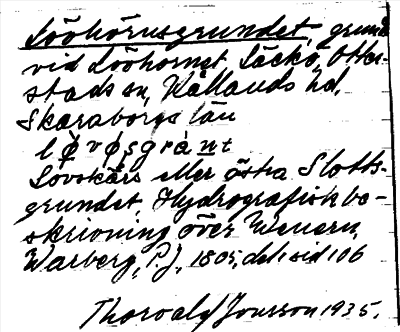 Lööhörnsgrundet, grund
vid Lööhornet, Läckö, Otter-
stads sn, Kållands hd,
Skaraborgs län
l ø v ø s g r a n t
Lövskärs eller östra Slotts-
grundet. Hydrografisk be-
skrivning över Wenern,
Warberg, P.J., 1805, del 1 sid 106
Thorvald Jonsson 1935.